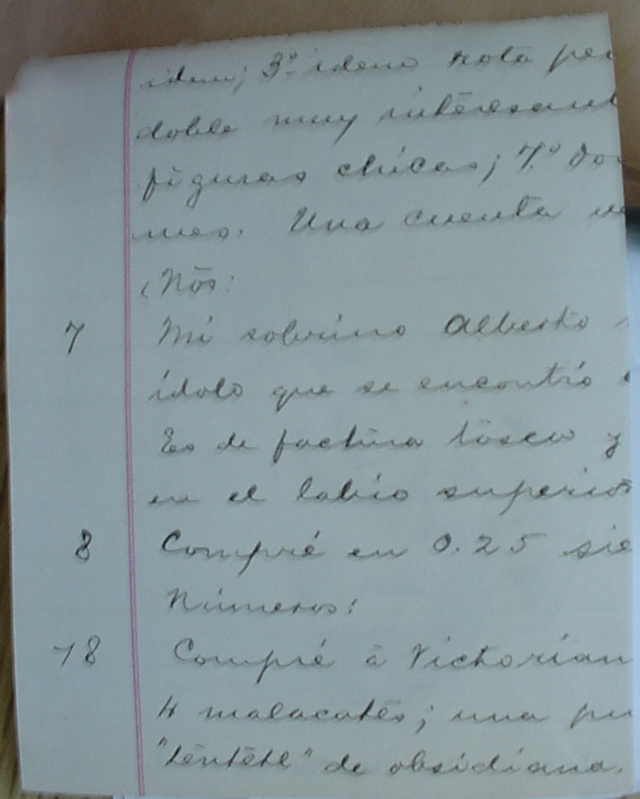 idem; 3º idem rota
doble muy interesant
figuras chicas; 7º
mes. Una cuenta
Nos:
7 Mi sobrino Alberto
ídolo que se encontró
Es de factura tosca y
en el labio superior
8 Compré en 0.25 sie
Números:
18 Compré á Victorian
4 malacates; una pu
"téntetl" de obsidiana.